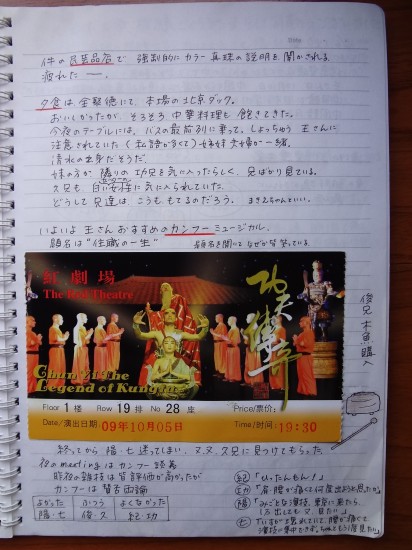 件の民芸品店で 強制的にカラー真珠の説明を聞かされる
疲れたー。
夕食は金聚徳にて、本場の北京ダック。
おいしかったが、そろそろ中華料理も飽きてきた。
今夜のテーブルには、バスの最前列に乗って、しょっちゅう王さんに
注意されていた(私語が多くて)姉妹夫婦が一緒。
清水の出身だそうだ。
妹の方が隣りの功兄を気に入ったらしく、兄ばかり見ている。
久兄も白い女性に気に入られていた。
どうして兄達は、こうももてるのだろう。
いよいよ王さんおすすめのカンフーミュージカル。
題名は"住職の一生"
題名を聞いてなぜか皆笑っている。
紅劇場
The Red Theatre
功夫傳奇
Chun Yi the
Legend of Kungfu
Floor 1 楼 Row 19 排 No 28 座
Price/票价:
Date/演出日期: 09年10月05日
Time/时间: 19:30
俊兄 木魚購入
終わってから 陽・七 迷ってしまい、又々久兄に見つけてもらった。
夜のmeetingはカンフー談義
昨夜の雑技は皆評価が高かったが
カンフーは賛否両論
よかった ふつう よくなかった
陽・七 俊・久 紀・功
紀「ひったんもん!」
功「首・腰が痛くて何度出ようと思ったか」
陽「みごとな演技。東京に来たら、
もう出してもう一度見たい」